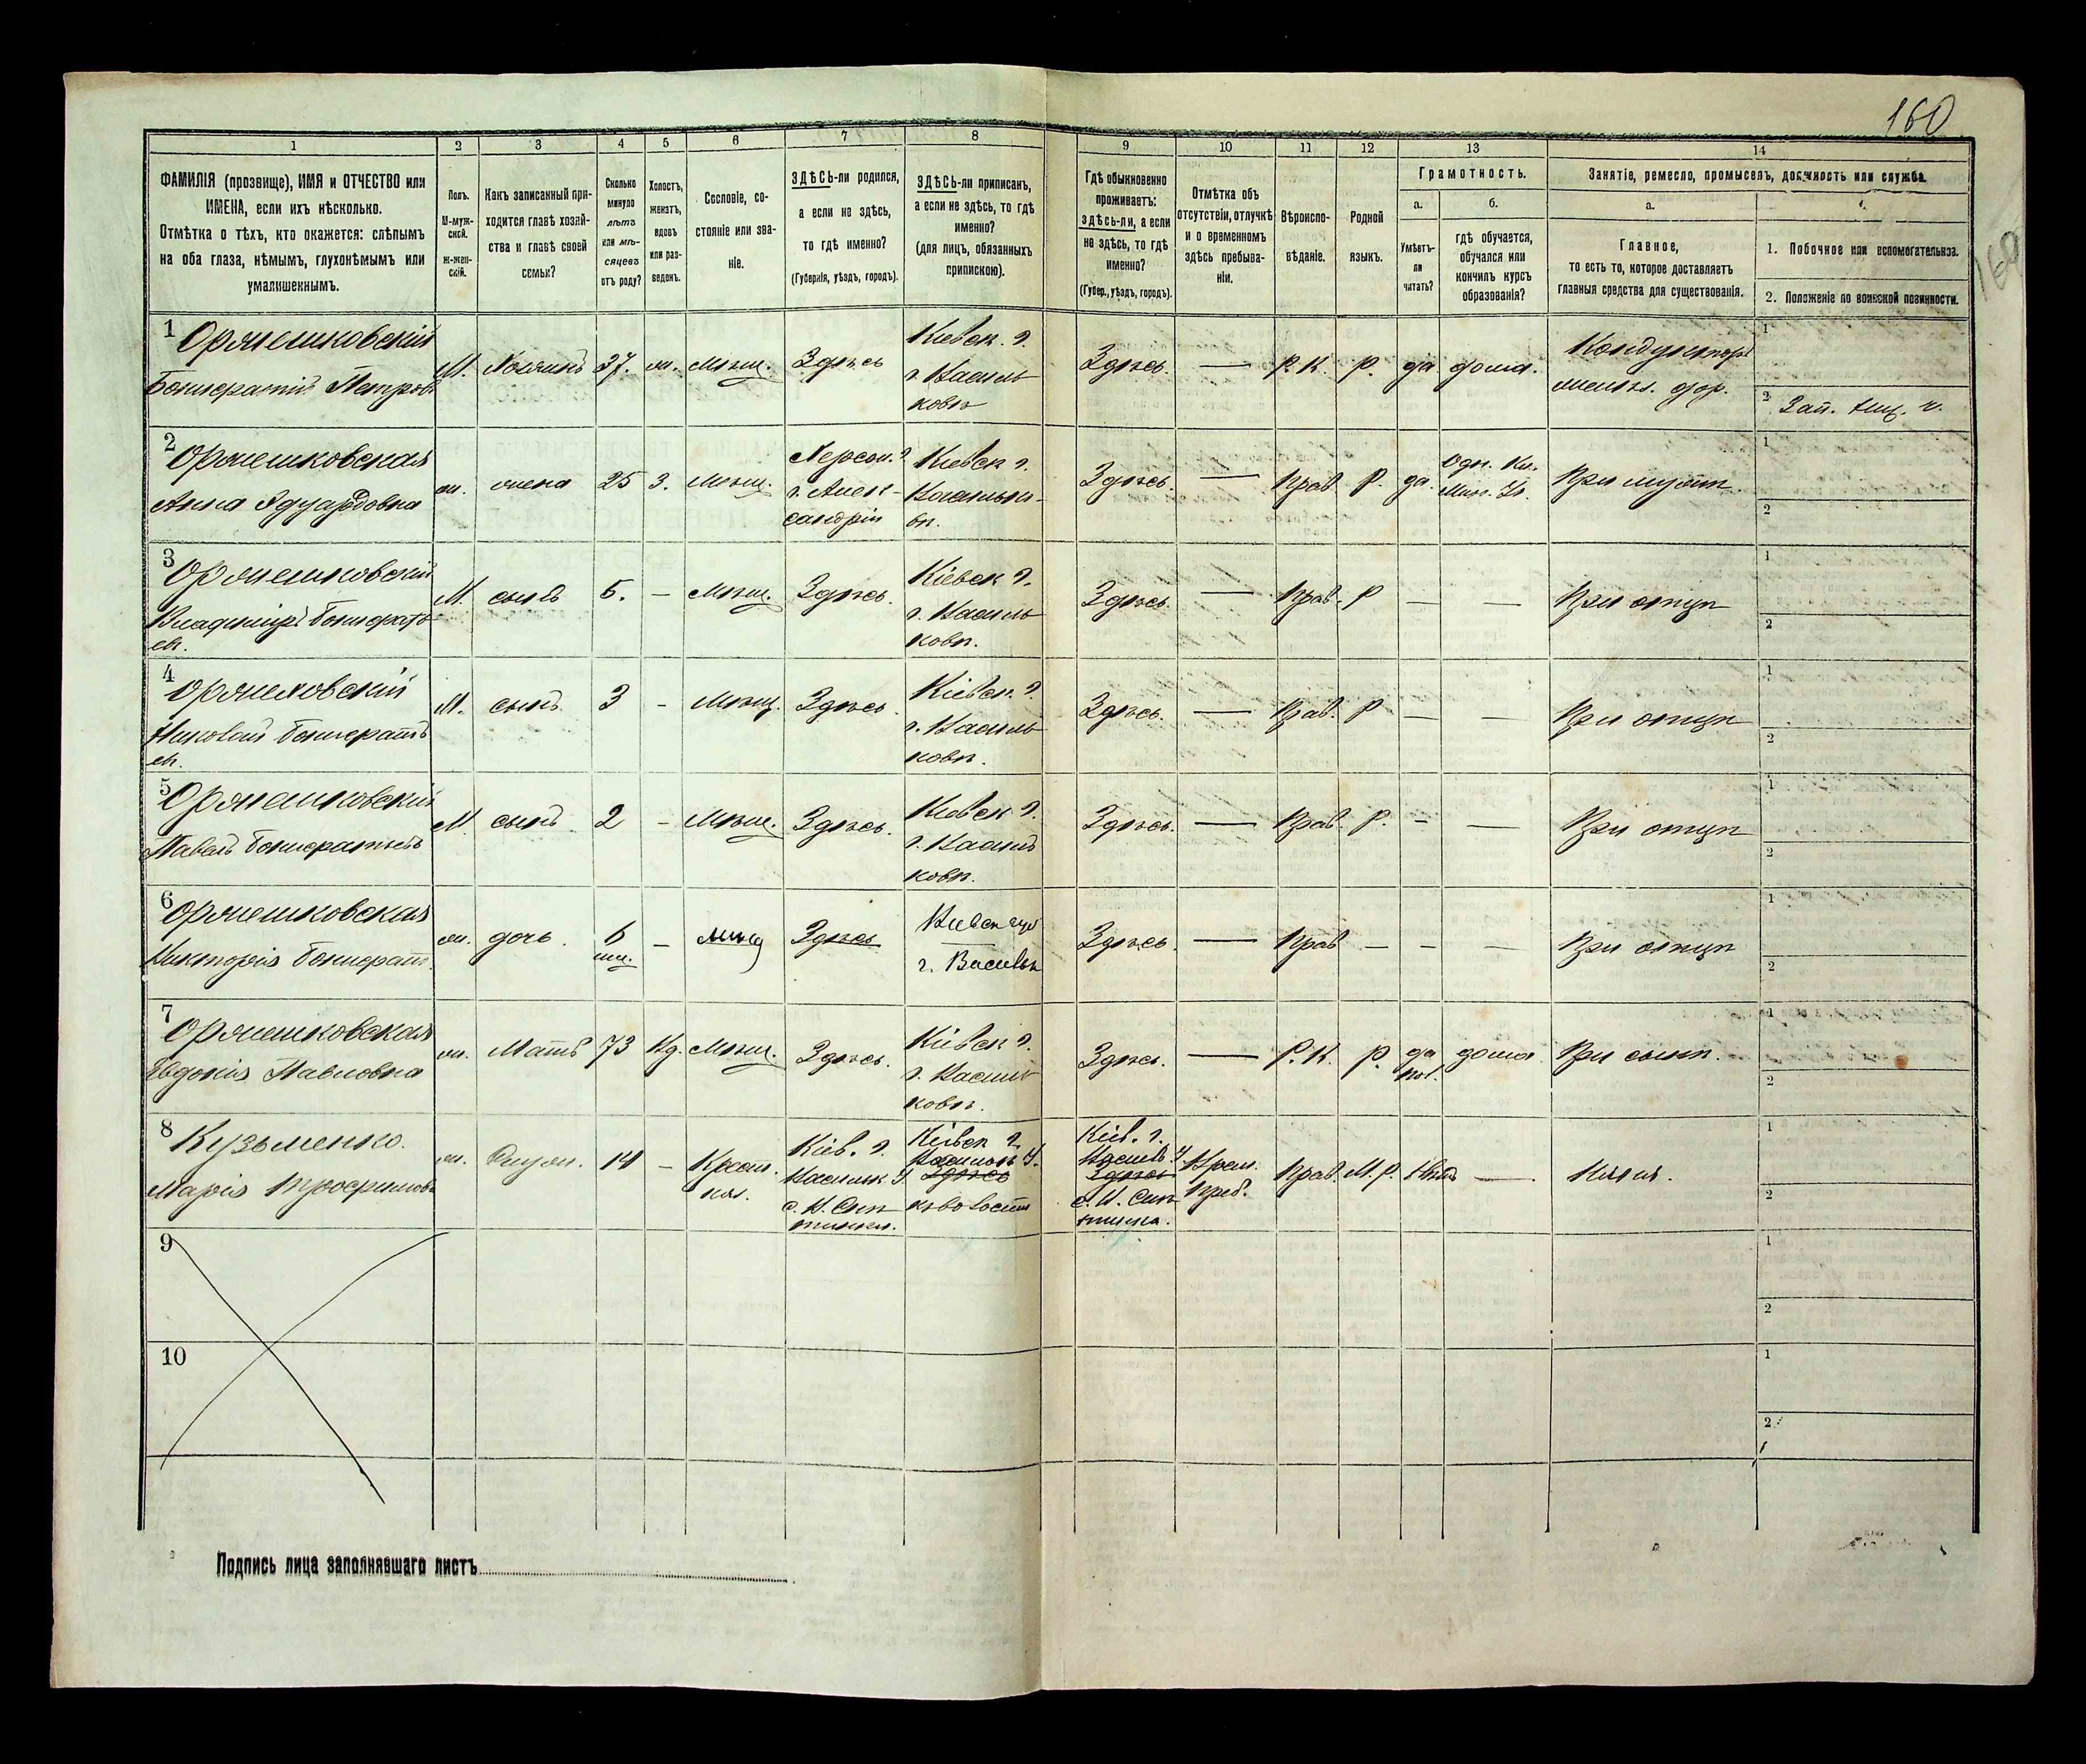 160
160
1 2 3 4 5 6 7 8 9 10 11 12 13 14
ФАМИЛІЯ (прозвище), ИМЯ и ОТЧЕСТВО или
ИМЕНА, если ихъ нѣсколько.
Отмѣтка о тѣхъ, кто окажется: слѣпымъ
на оба глаза, нѣмымъ, глухонѣмымъ или
умалишеннымъ.
Полъ.
М-муж-
ской.
Ж-жен-
скій.
Какъ записанный при-
ходится главѣ хозяй-
ства и главѣ своей
семьи?
Сколько
минуло
лѣтъ
или мѣ-
сяцевъ
отъ роду?
Холостъ,
женатъ,
вдовъ
или раз-
веденъ.
Сословіе, со-
стояніе или зва-
ніе.
ЗДѢСЬ-ли родился,
а если не здѣсь,
то гдѣ именно?
(Губернія, уѣздъ, городъ).
ЗДѢСЬ-ли приписанъ,
а если не здѣсь, то гдѣ
именно?
(для лицъ, обязанныхъ
припискою).
Гдѣ обыкновенно
проживаетъ:
здѣсь-ли, а если
не здѣсь, то гдѣ
именно?
(Губер., уѣздъ, городъ).
Отмѣтка объ
отсутствіи, отлучкѣ
и о временномъ
здѣсь пребыва-
ніи.
Вѣроиспо-
вѣданіе.
Родной
языкъ.
Грамотность.
а.
Умѣетъ-
ли
читать?
б.
гдѣ обучается,
обучался или
кончилъ курсъ
образованія?
Занятіе, ремесло, промыселъ, должность или служба.
а.
Главное,
то есть то, которое доставляетъ
главныя средства для существованія.
1. Побочное или вспомогательное.
2. Положеніе по воинской повинности.
1 Оржешковскій
Бонифатій Петров
М. Хозяинъ 37. ж. Мѣщ. Здѣсь
Кіевск. г.
г. Василь
ковъ
Здѣсь. — Р. К. Р. да дома.
Кондукторъ
желѣз. дор.
1
2 Зап.
2 Оржешковская
Анна Эдуардовна
ж. жена 25 З. Мѣщ.
Херсон. г.
г. Алек-
сандрія
Кіевск г.
Васильк-
вѣ.
Здѣсь — Прав Р. да.
При мужѣ.
1
2
3 Оржешковскій
Владиміръ Бонифатьев
М. сынъ 5. — Мѣщ. Здѣсь.
Кіевск г.
г. Василь
ковѣ.
Здѣсь — Прав. Р — — При отцѣ
1
2
4 Оржешковскій
Николай Бонифатьев
М. сынъ 3 — Мѣщ. Здѣсь.
Кіевск. г.
г. Василь
ковѣ.
Здѣсь. — Прав. Р — — При отцѣ
1
2
5 Оржешковскій
Павелъ Бонифатьевъ
М. сынъ 2 — Мѣщ. Здѣсь.
Кіевск г.
г. Василь
ковѣ.
Здѣсь. — Прав. Р. — — При отцѣ
1
2
6 Оржешковская
Викторія Бонифат.
ж. дочь. 6 — мѣщ Здѣсь
г. Васильк
Здѣсь. — Прав — — — При отцѣ
1
2
7 Оржешковская
Евдокія Павловна
ж. Мать 73 Вд. Мѣщ. Здѣсь.
Кіевск г.
г. Василь
ковѣ.
Здѣсь. — Р. К. Р. да
пол.
дома При сынѣ.
1
2
8 Кузьменко.
Марія Трофимовн
ж. 14 — Крест.
Кіев. г.
Васильк У.
Кіевск г.
Васильк У.
Здѣсь
Кіев. г.
Васильк У
Здѣсь
Врем.
Преб.
Прав. М. Р. Нѣтъ — Няня.
1
2
9
1
2
10
1
2
Подпись лица заполнявшаго листъ